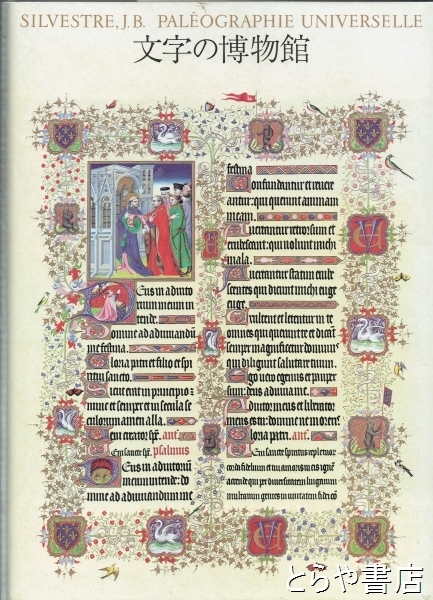 SILVESTRE, J.B. PALÉOGRAPHIE UNIVERSELLE
文字の博物館
festina
Confundantur et revere
antur: qui querunt animam
meam.
Avertantur retrorsum et
erubescant: qui volunt michi
mala.
Avertantur statim erube
scentes qui dicunt michi euge
euge.
Exultent et letentur in te
omnes qui querunt te et dicant
semper magnificetur dominus
qui diligunt salutare tuum.
Ego vero egenus et pauper
sum: deus adiuva me.
Adiutor meus et liberator
meus es tu: domine ne moreris
Gloria patri. ant.
Deus in adiuto
rium meum in
tende.
Domine ad adiuvandum
me festina.
Gloria patri et filio et spi
ritui sancto.
Sicut erat in principio
nunc et semper et in secula se
culorum amen alla.
psalmus
Deus in adiutorium
meum intende: do
mine ad adiuvandum me
とらや書店